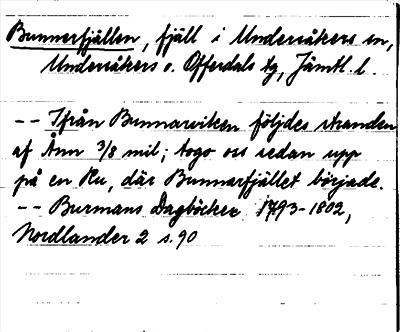 Bunnerfjällen, fjäll i Undersåkers sn,
Undersåkers o. Offerdals tg, Jämtl. l.
-- Ifrån Bunnarviken följdes stranden
af Ånn 3/8 mil; togo oss sedan upp
på en Hu, där Bunnarfjället började.
-- Burmans Dagböcker 1793-1802,
Nordlander 2 s. 90